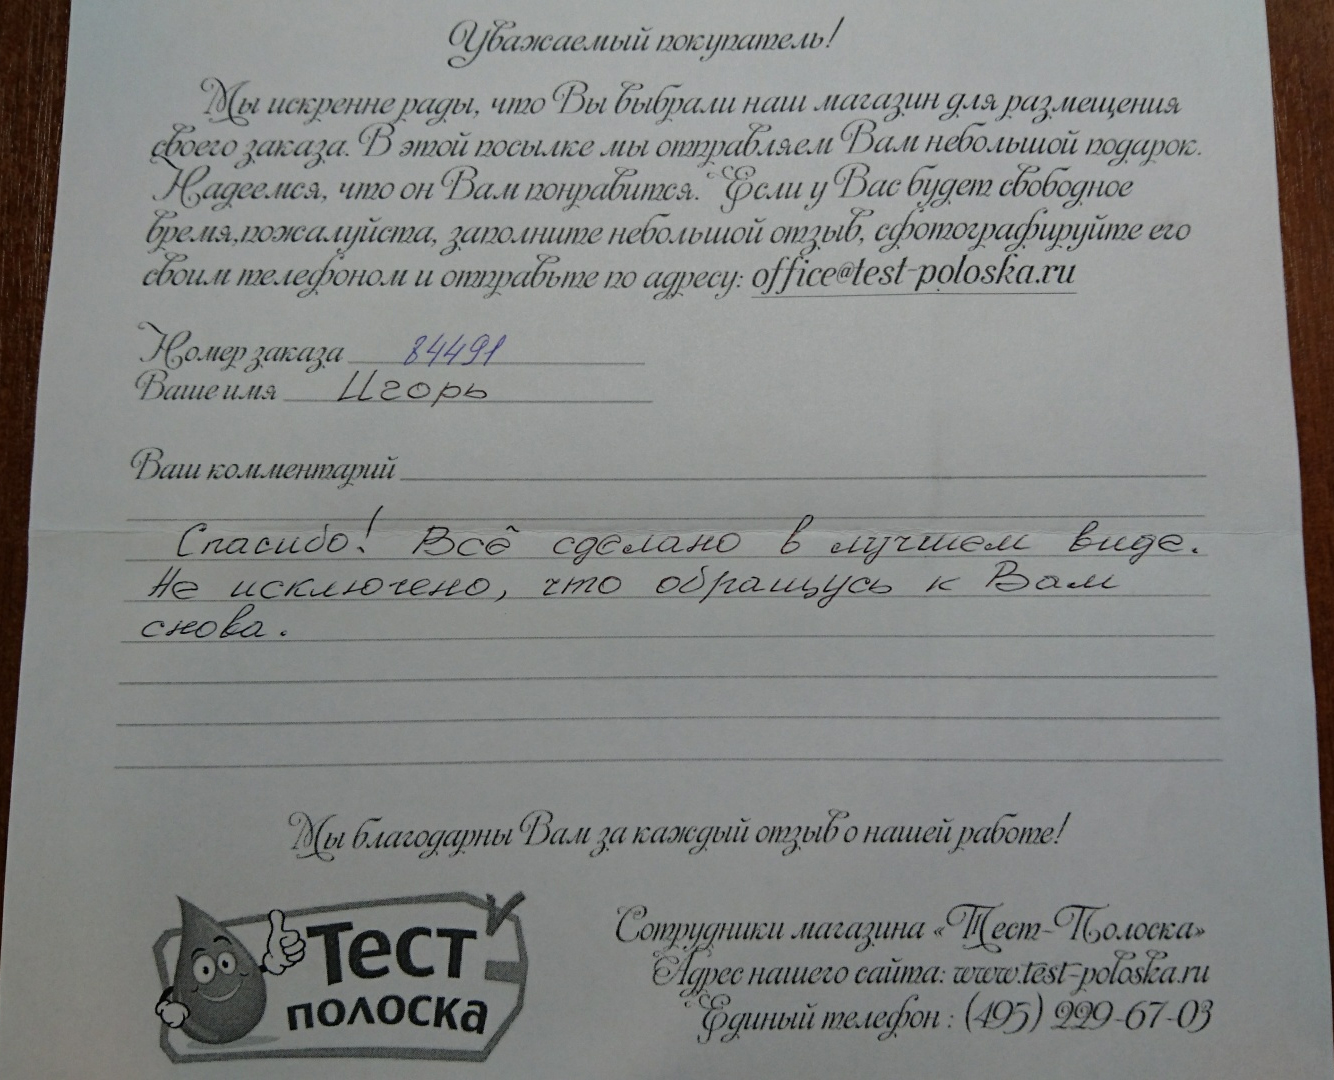 Уважаемый покупатель!
Мы искренне рады, что Вы выбрали наш магазин для размещения
своего заказа. В этой посылке мы отправляем Вам небольшой подарок.
Надеемся, что он Вам понравится. Если у Вас будет свободное
время,пожалуйста, заполните небольшой отзыв, сфотографируйте его
своим телефоном и отправьте по адресу: office@test-poloska.ru
Номер заказа 84491
Ваше имя Игорь
Ваш комментарий
Спасибо! Всё сделано в лучшем виде.
Не исключено, что обращусь к Вам
снова.
Мы благодарны Вам за каждый отзыв о нашей работе!
Тест
полоска
Сотрудники магазина «Тест-Полоска»
Адрес нашего сайта: www.test-poloska.ru
Единый телефон : (495) 229-67-03